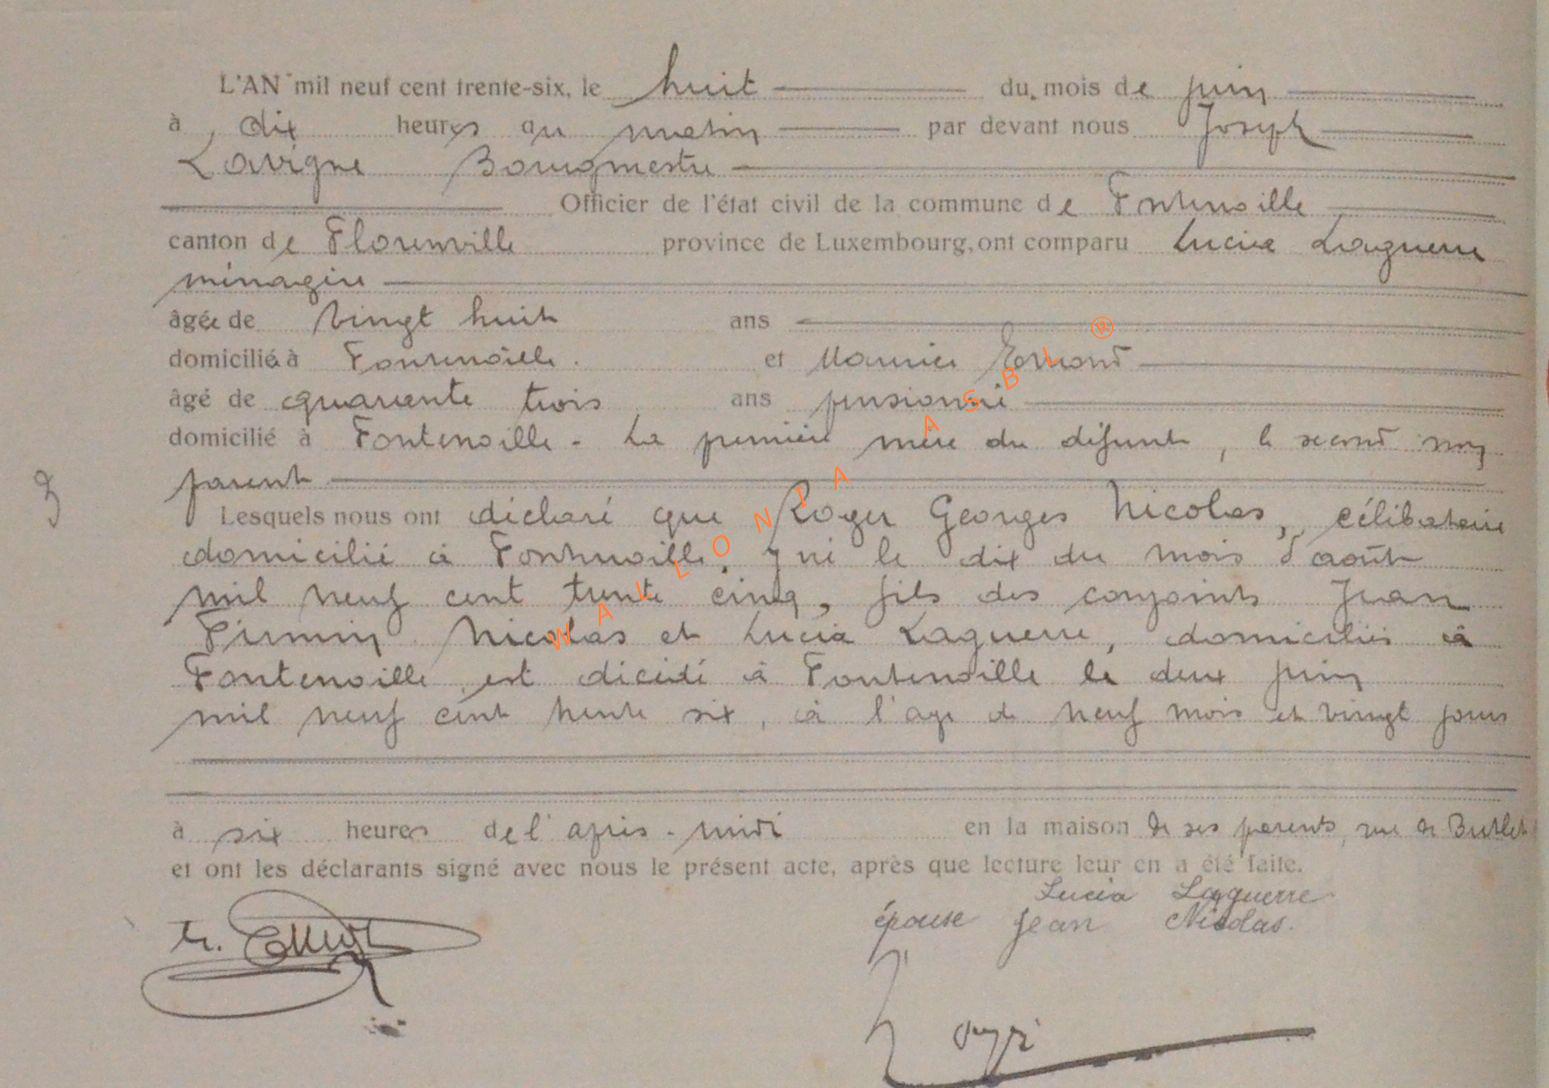 L'AN mil neuf cent trente-six, le huit du mois de juin
à dix heures du matin par devant nous Joseph
Lavigne Bourgmestre
Officier de l'état civil de la commune de Fontenoille
canton de Florenville province de Luxembourg, ont comparu Lucia Laguerre
ménagère
âgée de vingt huit ans
domiciliée à Fontenoille. et Maurice Edmond
âgé de quarante trois ans pensionné
domicilié à Fontenoille - La première mère du défunt, le second non
parent
3
Lesquels nous ont déclaré que Roger Georges Nicolas, célibataire
domicilié à Fontenoille, y né le dix du mois d'août
mil neuf cent trente cinq, fils des conjoints Jean
Firmin Nicolas et Lucia Laguerre, domiciliés à
Fontenoille est décédé à Fontenoille le deux juin
mil neuf cent trente six, à l'age de neuf mois et vingt jours
à six heures de l'après-midi en la maison de ses parents, rue de
et ont les déclarants signé avec nous le présent acte, après que lecture leur en a été faite.
Lucia Laguerre
épouse Jean Nicolas.
WALLONIA ASBL ®